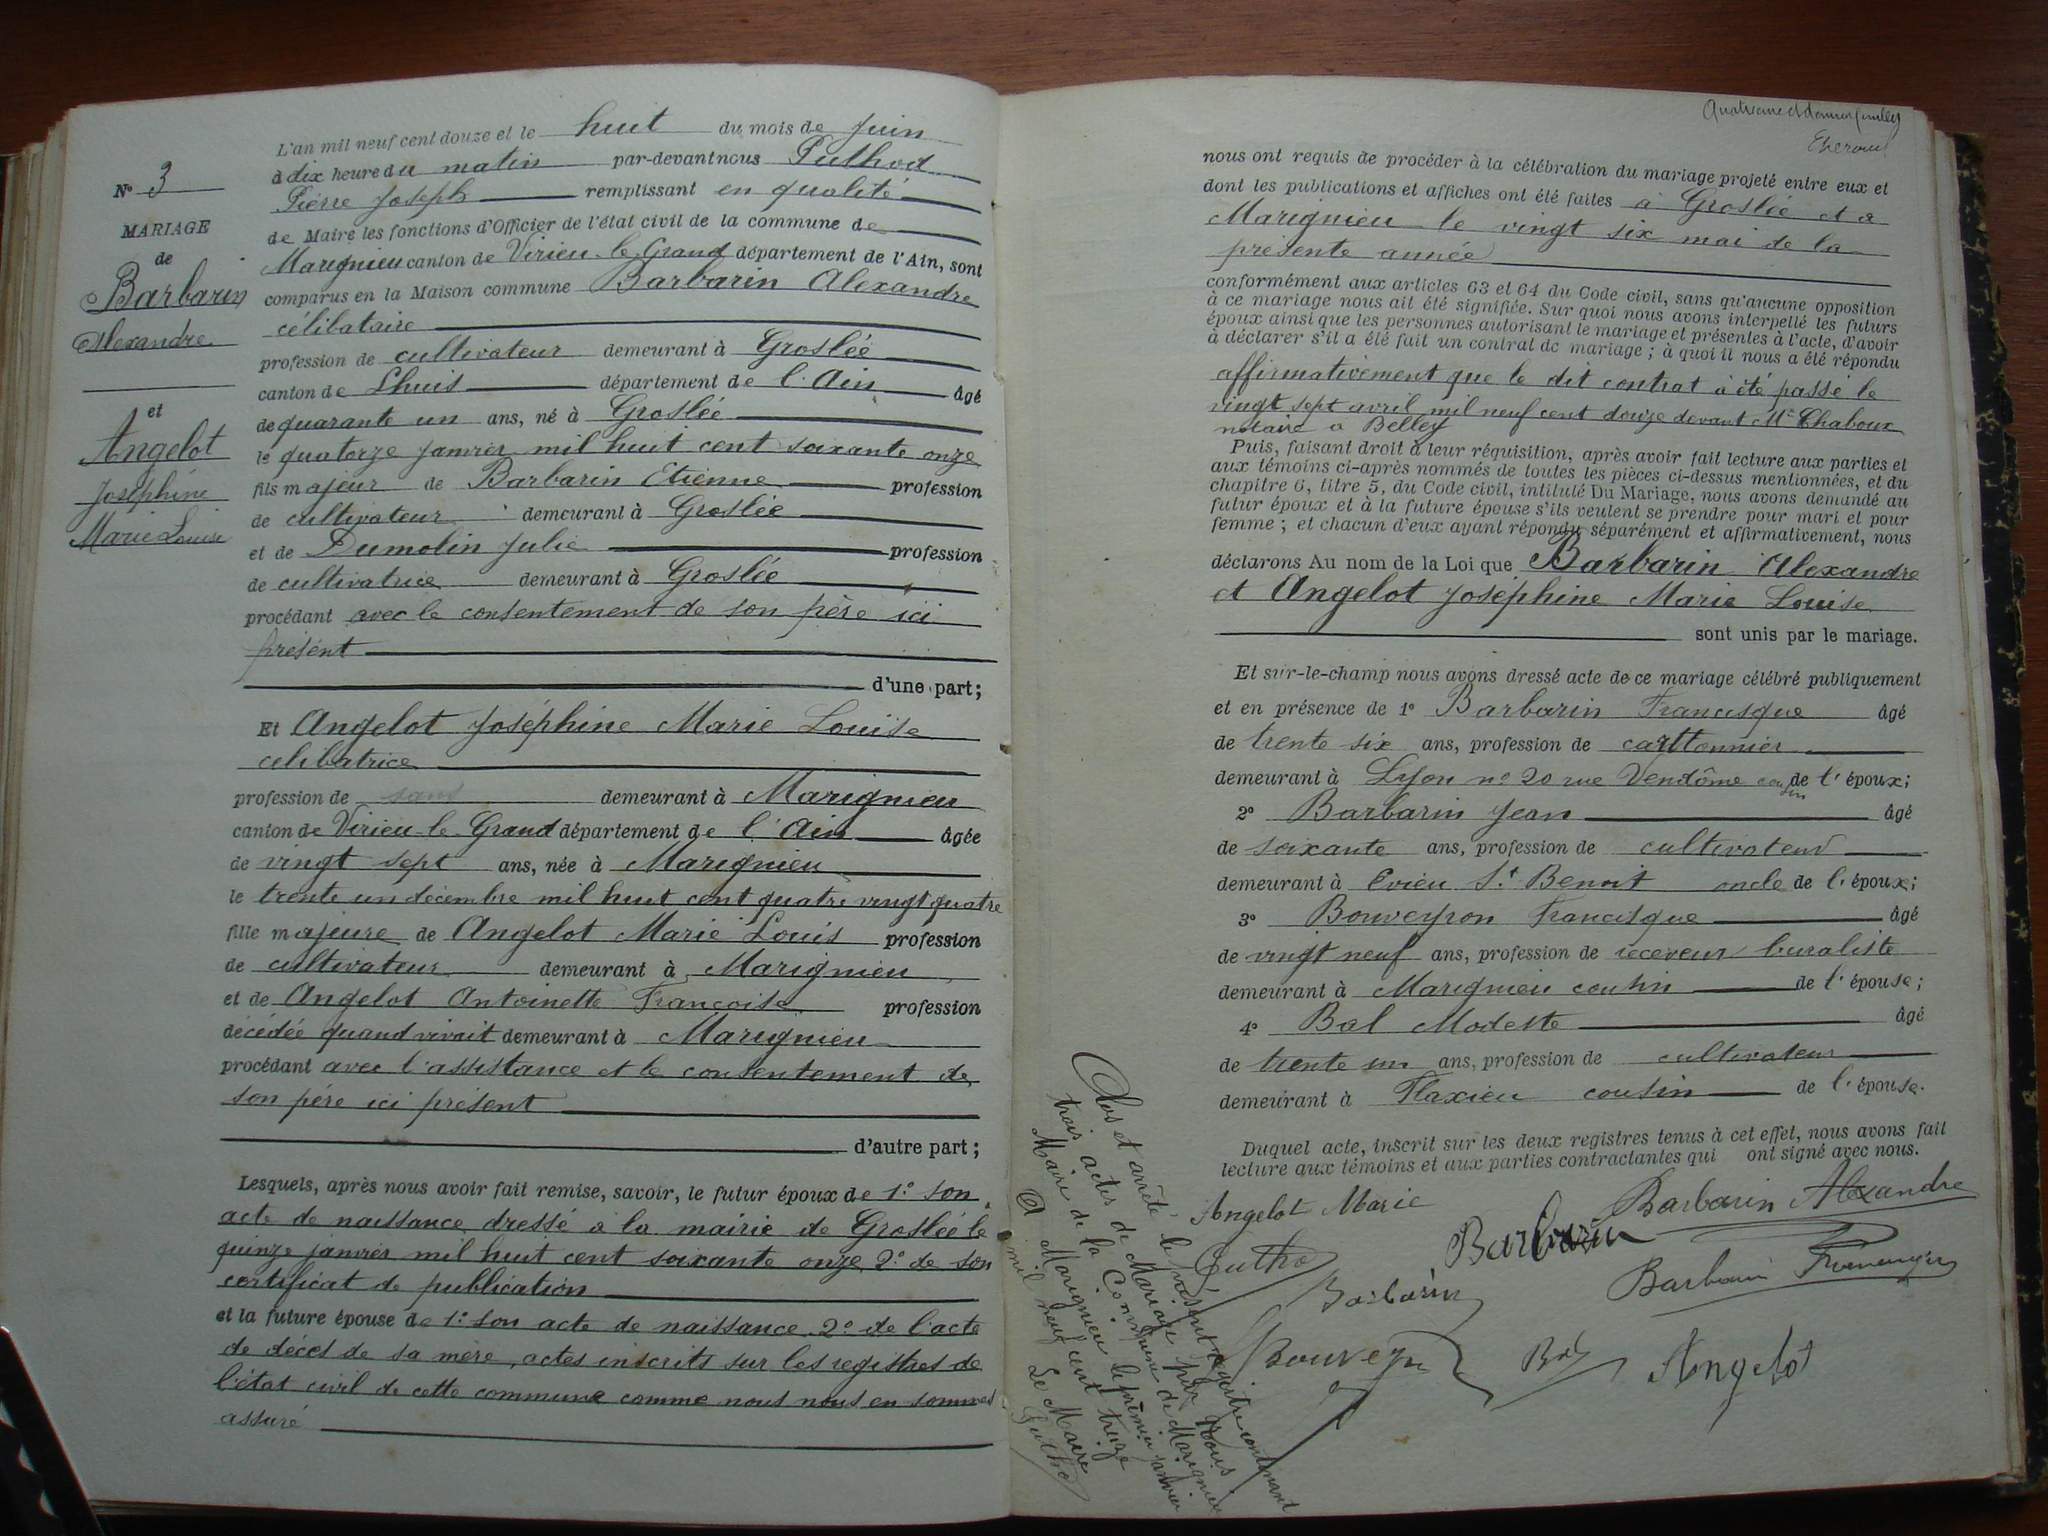 L'an mil neuf cent douze et le huit du mois de juin
à dix heure du matin par-devant nous Puthod
Pierre Joseph remplissant en qualité
de Maire les fonctions d'Officier de l'état civil de la commune de
Marignieu canton de Virieu-le-Grand département de l'Ain, sont
comparus en la Maison commune Barbarin Alexandre
célibataire
profession de cultivateur demeurant à Groslée
canton de Lhuis département de l'Ain âgé
de quarante un ans, né à Groslée
le quatorze janvier mil huit cent soixante onze
fils majeur de Barbarin Etienne profession
de cultivateur demeurant à Groslée
et de Dumolin Julie profession
de cultivatrice demeurant à Groslée
procédant avec le consentement de son père ici
présent
d'une part;
Et Angelot Joséphine Marie Louise
célibatrice
profession de sans demeurant à Marignieu
canton de Virieu-le-Grand département de l'Ain âgée
de vingt sept ans, née à Marignieu
le trente un décembre mil huit cent quatre vingt quatre
fille majeure de Angelot Marie Louis profession
de cultivateur demeurant à Marignieu
et de Angelot Antoinette Françoise profession
décédée quand vivait demeurant à Marignieu
procédant avec l'assistance et le consentement de
son père ici présent
d'autre part;
Lesquels, après nous avoir fait remise, savoir, le futur époux de 1° son
acte de naissance dressé à la mairie de Groslée le
quinze janvier mil huit cent soixante onze 2° de son
certificat de publication
et la future épouse de 1° son acte de naissance 2° de l'acte
de décès de sa mère, actes inscrits sur les registres de
l'état civil de cette commune comme nous nous en sommes
assuré
N° 3
MARIAGE
de
Barbarin
Alexandre
et
Angelot
Joséphine
Marie Louise
nous ont requis de procéder à la célébration du mariage projeté entre eux et
dont les publications et affiches ont été faites à Groslée et à
Marignieu le vingt six mai de la
présente année
conformément aux articles 63 et 64 du Code civil, sans qu'aucune opposition
à ce mariage nous ait été signifiée. Sur quoi nous avons interpellé les futurs
époux ainsi que les personnes autorisant le mariage et présentes à l'acte, d'avoir
à déclarer s'il a été fait un contrat de mariage; à quoi il nous a été répondu
affirmativement que le dit contrat à été passé le
vingt sept avril mil neuf cent douze devant Me Chaboux
notaire à Belley
Puis, faisant droit à leur réquisition, après avoir fait lecture aux parties et
aux témoins ci-après nommés de toutes les pièces ci-dessus mentionnées, et du
chapitre 6, titre 5, du Code civil, intitulé Du Mariage, nous avons demandé au
futur époux et à la future épouse s'ils veulent se prendre pour mari et pour
femme; et chacun d'eux ayant répondu séparément et affirmativement, nous
déclarons Au nom de la Loi que Barbarin Alexandre
et Angelot Joséphine Marie Louise
sont unis par le mariage.
Et sur-le-champ nous avons dressé acte de ce mariage célébré publiquement
et en présence de 1° Barbarin Francisque âgé
de trente six ans, profession de carttonnier
demeurant à Lyon n° 20 rue Vendôme cousin de l'époux;
2° Barbarin Jean âgé
de soixante ans, profession de cultivateur
demeurant à Evieu St Benoit oncle de l'époux;
3° Bouveyron Francisque âgé
de vingt neuf ans, profession de receveur buraliste
demeurant à Marignieu cousin de l'épouse;
4° Bal Modeste âgé
de trente un ans, profession de cultivateur
demeurant à Flaxieu cousin de l'épouse.
Duquel acte, inscrit sur les deux registres tenus à cet effet, nous avons fait
lecture aux témoins et aux parties contractantes qui ont signé avec nous.
Angelot Marie
Barbarin Alexandre
Barbarin
Barbarin
Barbarin
Bal
Angelot
Clos et arrêté le présent registre contenant
trois actes de Mariage par Nous
Maire de la Commune de Marignieu
A Marignieu le premier janvier
mil neuf cent treize
Le Maire